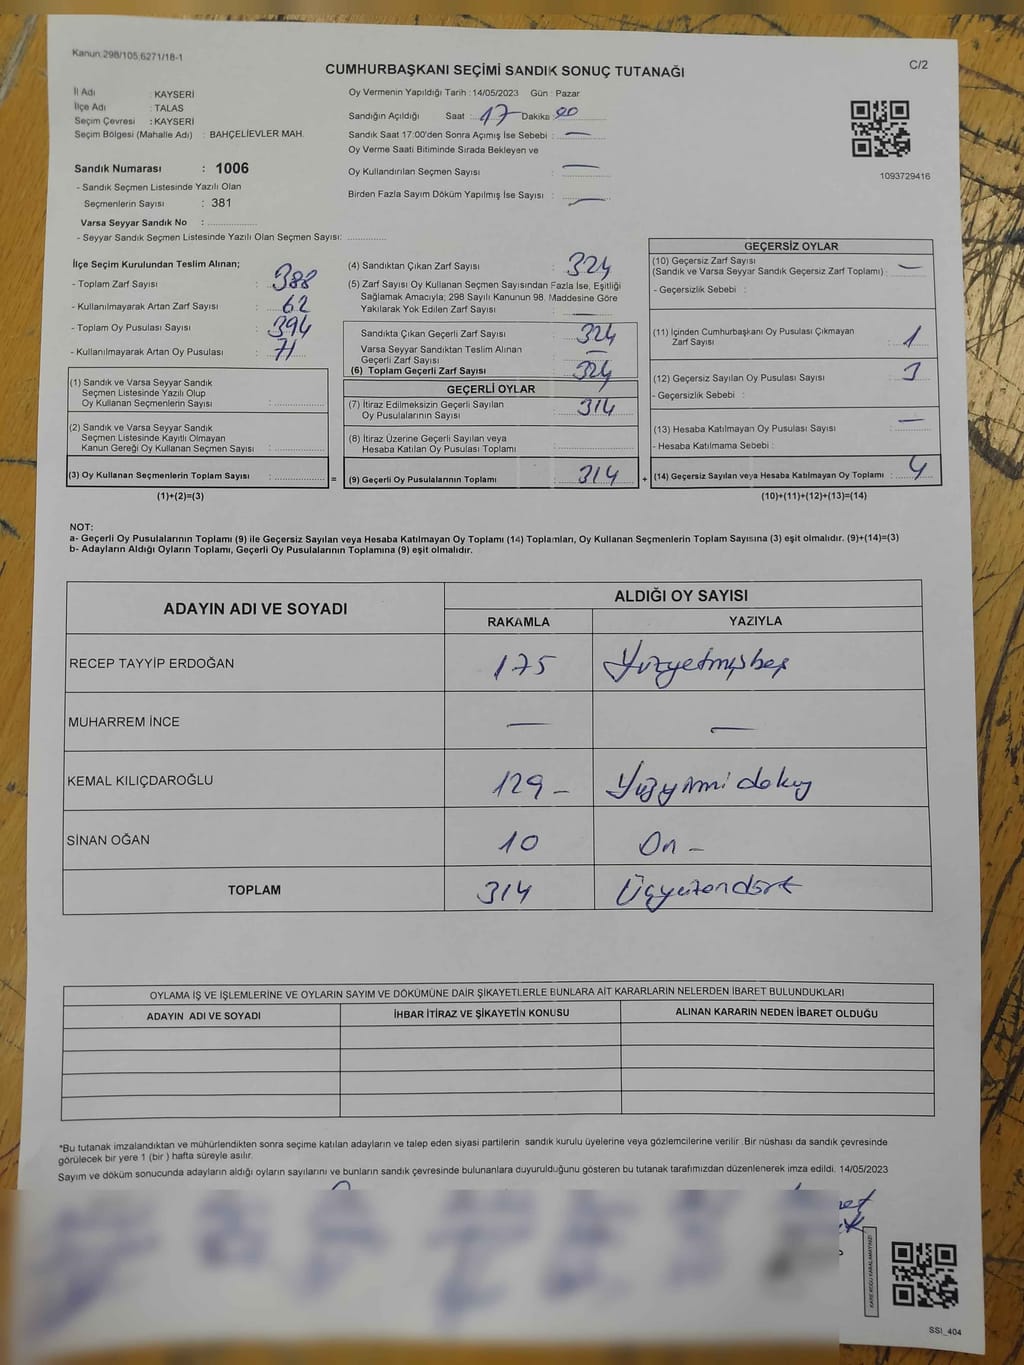 Kanun:298/105,6271/18-1
C/2
CUMHURBAŞKANI SEÇİMİ SANDIK SONUÇ TUTANAĞI
İl Adı : KAYSERİ
İlçe Adı : TALAS
Seçim Çevresi : KAYSERİ
Seçim Bölgesi (Mahalle Adı) : BAHÇELİEVLER MAH.
Sandık Numarası : 1006
- Sandık Seçmen Listesinde Yazılı Olan
Seçmenlerin Sayısı : 381
Varsa Seyyar Sandık No :
- Seyyar Sandık Seçmen Listesinde Yazılı Olan Seçmen Sayısı:
Oy Vermenin Yapıldığı Tarih :14/05/2023 Gün : Pazar
Sandığın Açıldığı Saat : 17 Dakika : 00
Sandık Saat 17:00'den Sonra Açımış İse Sebebi : —
Oy Verme Saati Bitiminde Sırada Bekleyen ve
Oy Kullandırılan Seçmen Sayısı : —
Birden Fazla Sayım Döküm Yapılmış İse Sayısı : —
1093729416
İlçe Seçim Kurulundan Teslim Alınan;
- Toplam Zarf Sayısı : 388
- Kullanılmayarak Artan Zarf Sayısı : 62
- Toplam Oy Pusulası Sayısı : 394
- Kullanılmayarak Artan Oy Pusulası : 71
(1) Sandık ve Varsa Seyyar Sandık
Seçmen Listesinde Yazılı Olup
Oy Kullanan Seçmenlerin Sayısı :
(2) Sandık ve Varsa Seyyar Sandık
Seçmen Listesinde Kayıtlı Olmayan
Kanun Gereği Oy Kullanan Seçmen Sayısı :
(3) Oy Kullanan Seçmenlerin Toplam Sayısı : =
(1)+(2)=(3)
(4) Sandıktan Çıkan Zarf Sayısı : 324
(5) Zarf Sayısı Oy Kullanan Seçmen Sayısından Fazla İse, Eşitliği
Sağlamak Amacıyla; 298 Sayılı Kanunun 98. Maddesine Göre
Yakılarak Yok Edilen Zarf Sayısı : —
Sandıkta Çıkan Geçerli Zarf Sayısı : 324
Varsa Seyyar Sandıktan Teslim Alınan
Geçerli Zarf Sayısı : —
(6) Toplam Geçerli Zarf Sayısı : 324
GEÇERLİ OYLAR
(7) İtiraz Edilmeksizin Geçerli Sayılan
Oy Pusulalarının Sayısı : 314
(8) İtiraz Üzerine Geçerli Sayılan veya
Hesaba Katılan Oy Pusulası Toplamı :
(9) Geçerli Oy Pusulalarının Toplamı : 314 +
GEÇERSİZ OYLAR
(10) Geçersiz Zarf Sayısı
(Sandık ve Varsa Seyyar Sandık Geçersiz Zarf Toplamı) : —
- Geçersizlik Sebebi :
(11) İçinden Cumhurbaşkanı Oy Pusulası Çıkmayan
Zarf Sayısı : 1
(12) Geçersiz Sayılan Oy Pusulası Sayısı : 3
- Geçersizlik Sebebi :
(13) Hesaba Katılmayan Oy Pusulası Sayısı : —
- Hesaba Katılmama Sebebi :
(14) Geçersiz Sayılan veya Hesaba Katılmayan Oy Toplamı : 4
(10)+(11)+(12)+(13)=(14)
NOT:
a- Geçerli Oy Pusulalarının Toplamı (9) ile Geçersiz Sayılan veya Hesaba Katılmayan Oy Toplamı (14) Toplamları, Oy Kullanan Seçmenlerin Toplam Sayısına (3) eşit olmalıdır. (9)+(14)=(3)
b- Adayların Aldığı Oyların Toplamı, Geçerli Oy Pusulalarının Toplamına (9) eşit olmalıdır.
ADAYIN ADI VE SOYADI ALDIĞI OY SAYISI
RAKAMLA YAZIYLA
RECEP TAYYİP ERDOĞAN 175 Yüzyetmişbeş
MUHARREM İNCE — —
KEMAL KILIÇDAROĞLU 129 - Yüzyirmi dokuz
SİNAN OĞAN 10 On -
TOPLAM 314 Üçyüzondört
OYLAMA İŞ VE İŞLEMLERİNE VE OYLARIN SAYIM VE DÖKÜMÜNE DAİR ŞİKAYETLERLE BUNLARA AİT KARARLARIN NELERDEN İBARET BULUNDUKLARI
ADAYIN ADI VE SOYADI İHBAR İTİRAZ VE ŞİKAYETİN KONUSU ALINAN KARARIN NEDEN İBARET OLDUĞU
*Bu tutanak imzalandıktan ve mühürlendikten sonra seçime katılan adayların ve talep eden siyasi partilerin sandık kurulu üyelerine veya gözlemcilerine verilir .Bir nüshası da sandık çevresinde
görülecek bir yere 1 (bir ) hafta süreyle asılır.
Sayım ve döküm sonucunda adayların aldığı oyların sayılarını ve bunların sandık çevresinde bulunanlara duyurulduğunu gösteren bu tutanak tarafımızdan düzenlenerek imza edildi. 14/05/2023
KARE KODU KARALAMAYINIZ!
SSI_404